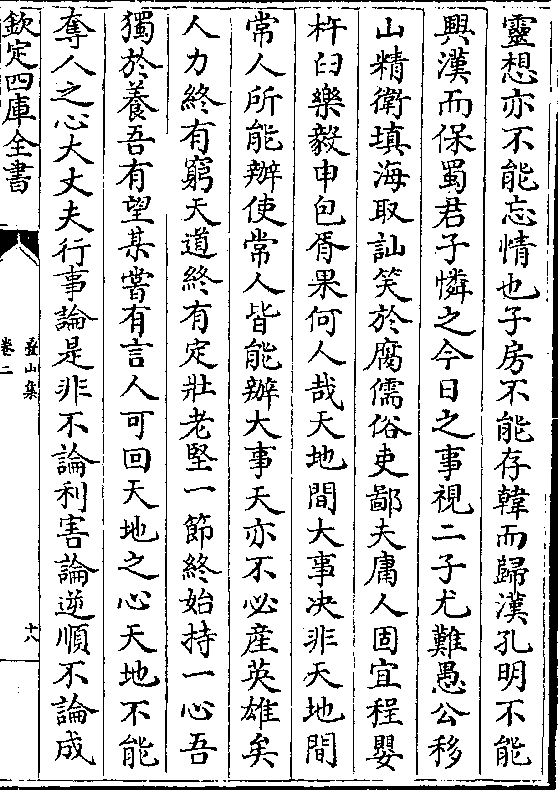 靈想亦不能忘情也子房不能存韓而歸漢孔明不能
興漢而保蜀君子憐之今日之事視二子尤難愚公移
山精衛填海取訕笑於腐儒俗吏鄙夫庸人固宜程嬰
杵臼樂毅申包胥果何人哉天地間大事决非天地間
常人所能辦使常人皆能辦大事天亦不必産英雄矣
人力終有窮天道終有定壯老堅一節終始持一心吾
獨於養吾有望某嘗有言人可回天地之心天地不能
奪人之心大丈夫行事論是非不論利害論逆順不論成
欽定四庫全書
疊山集
卷二
十八